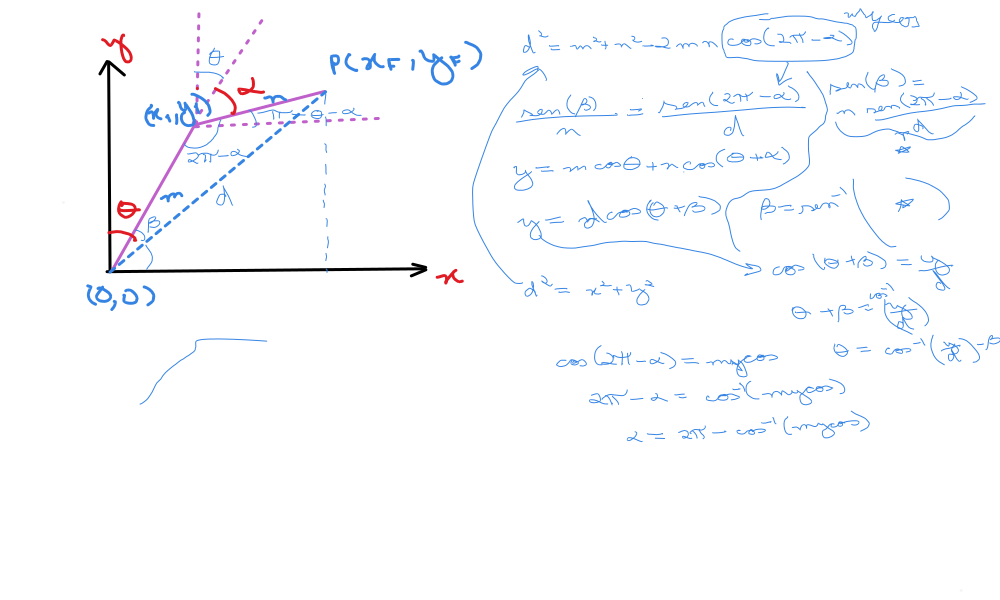 y
θ
α
P(xF, yF)
(x1, y1)
n
π - θ - α
2π-α
θ
m
d
β
x
(0,0)
mycos
d² = m²+n²-2mn cos(2π-α)
sen(β) / n = sen(2π-α) / d
sen(β) = n sen(2π-α) / d
*
y = m cosθ + n cos(θ+α)
y = d cos(θ+β)
β = sen⁻¹( * )
cos(θ+β) = y/d
d² = x²+y²
θ+β = cos⁻¹(y/d)
θ = cos⁻¹(y/d) - β
cos(2π-α) = mycos
2π-α = cos⁻¹(mycos)
α = 2π - cos⁻¹(mycos)